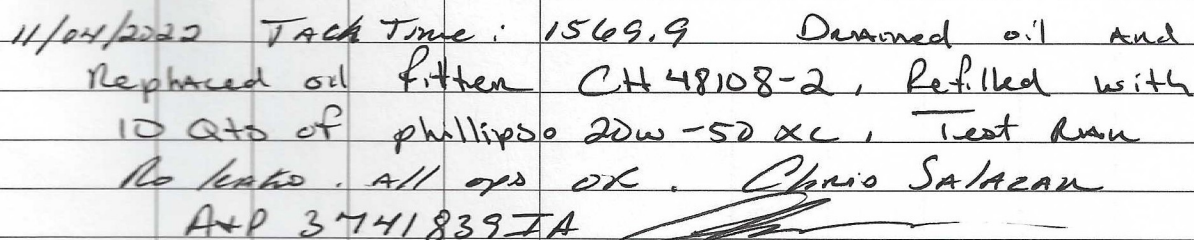 11/04/2022 Tach Time: 1569.9 Drained oil and
Replaced oil filter CH48108-2, Refilled with
10 Qts of phillips 20w-50 XC, Test Run
No leaks. All ops ok. Chris Salazar
A+P 3741839IA